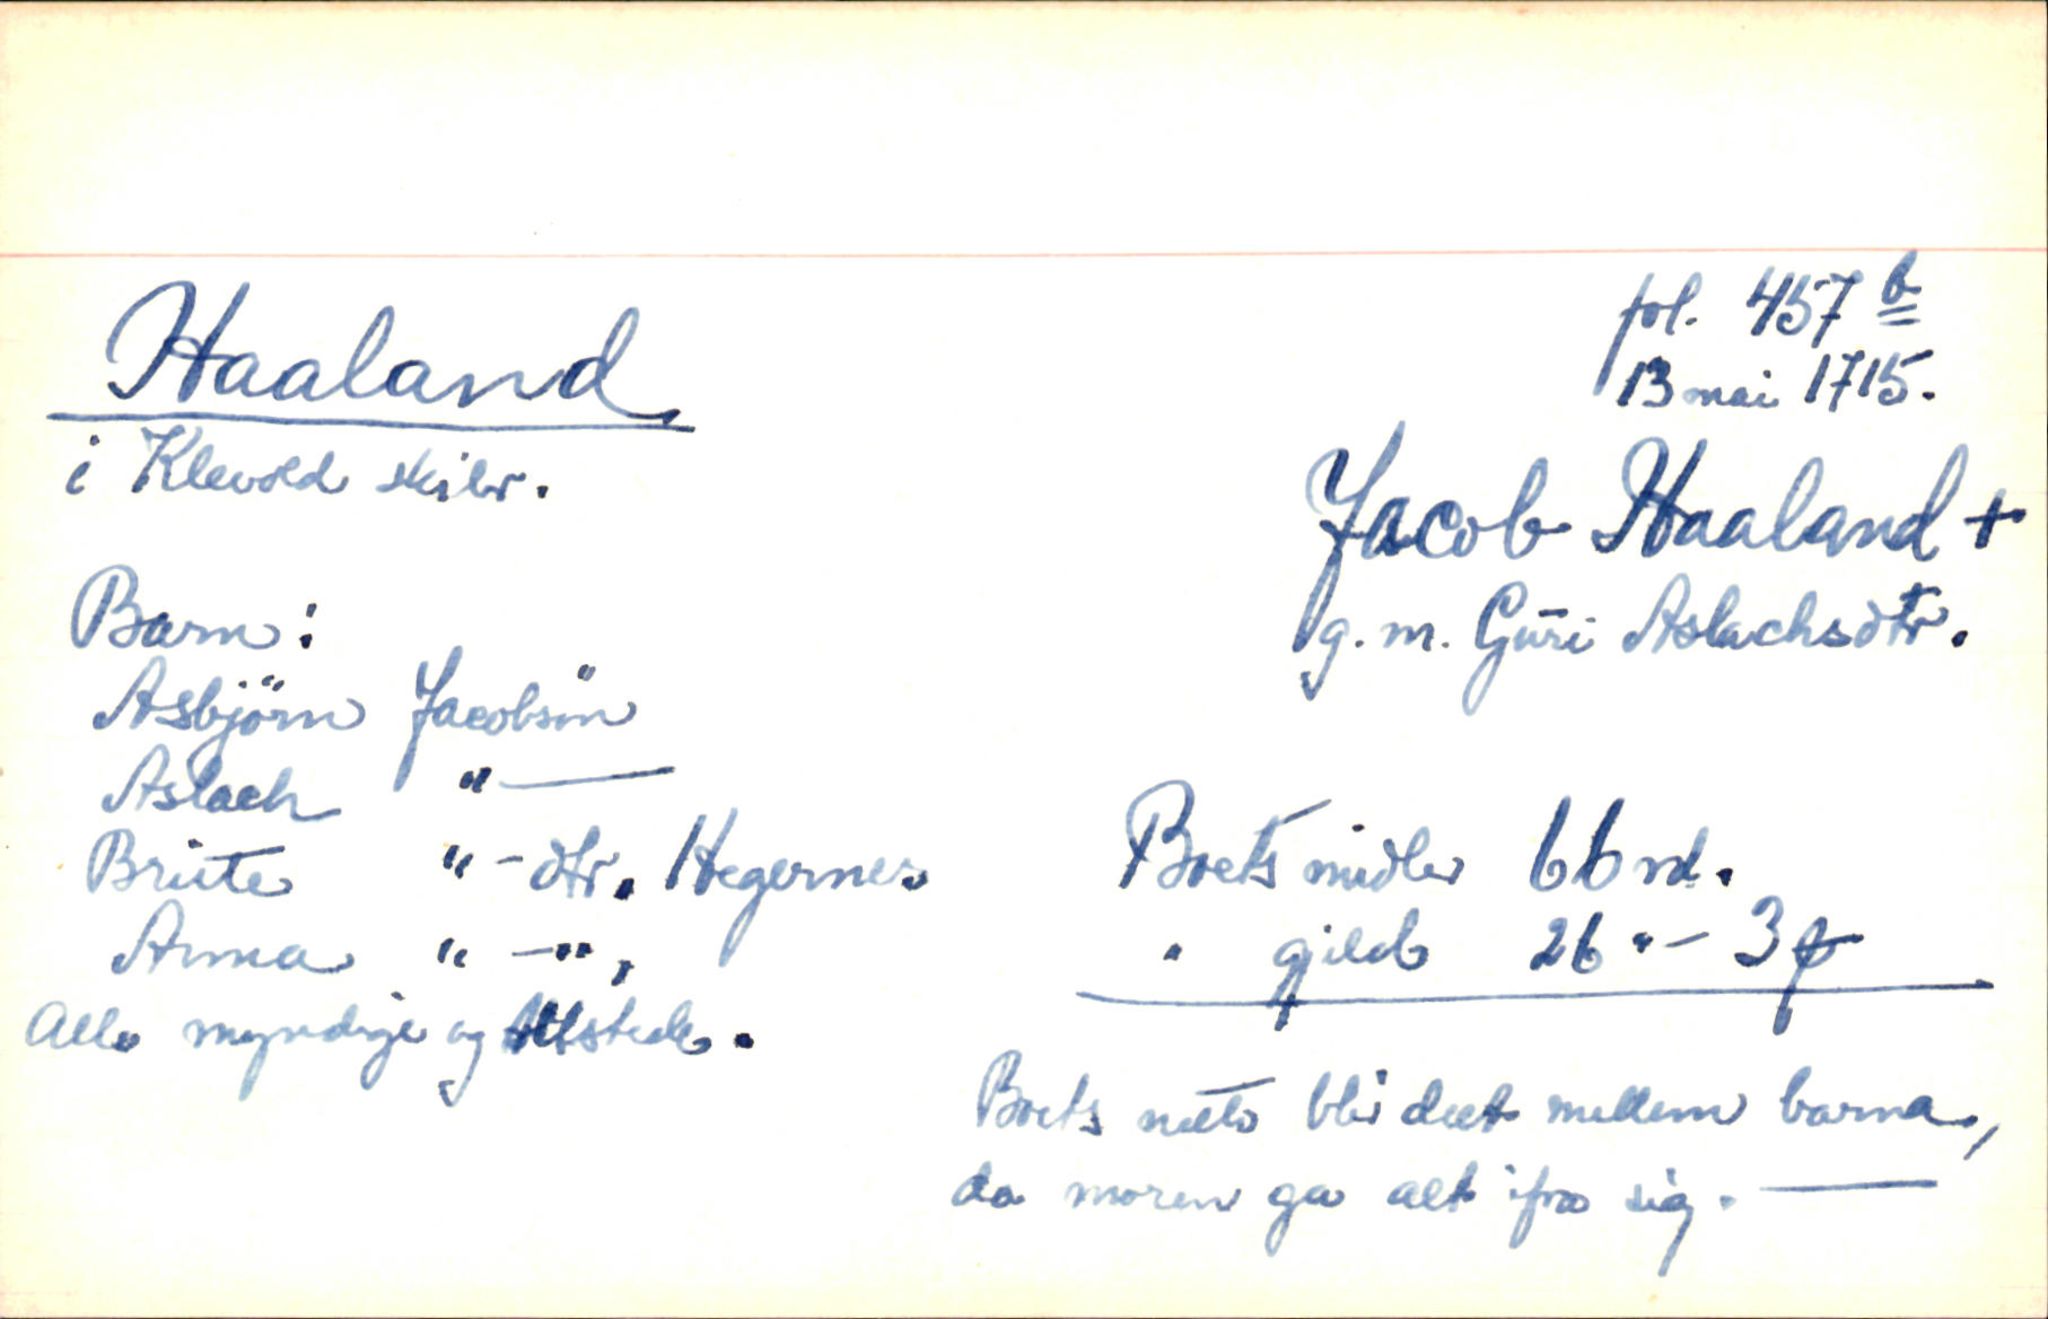 Haaland
i Klevold skibr.
fol. 457 b
13 mai 1715.
Jacob Haaland +
g. m. Gūri Aslachsdtr.
Barn:
Asbjörn Jacobsön
Aslach "—
Briite " - dtr. Hegernes.
Anna " —",
Alle myndige og tilstede.
Boets midler 66 rd.
" gjeld 26 "- 3 β
Boets netto blir delt mellem barna,
da moren ga alt ifra sig. —